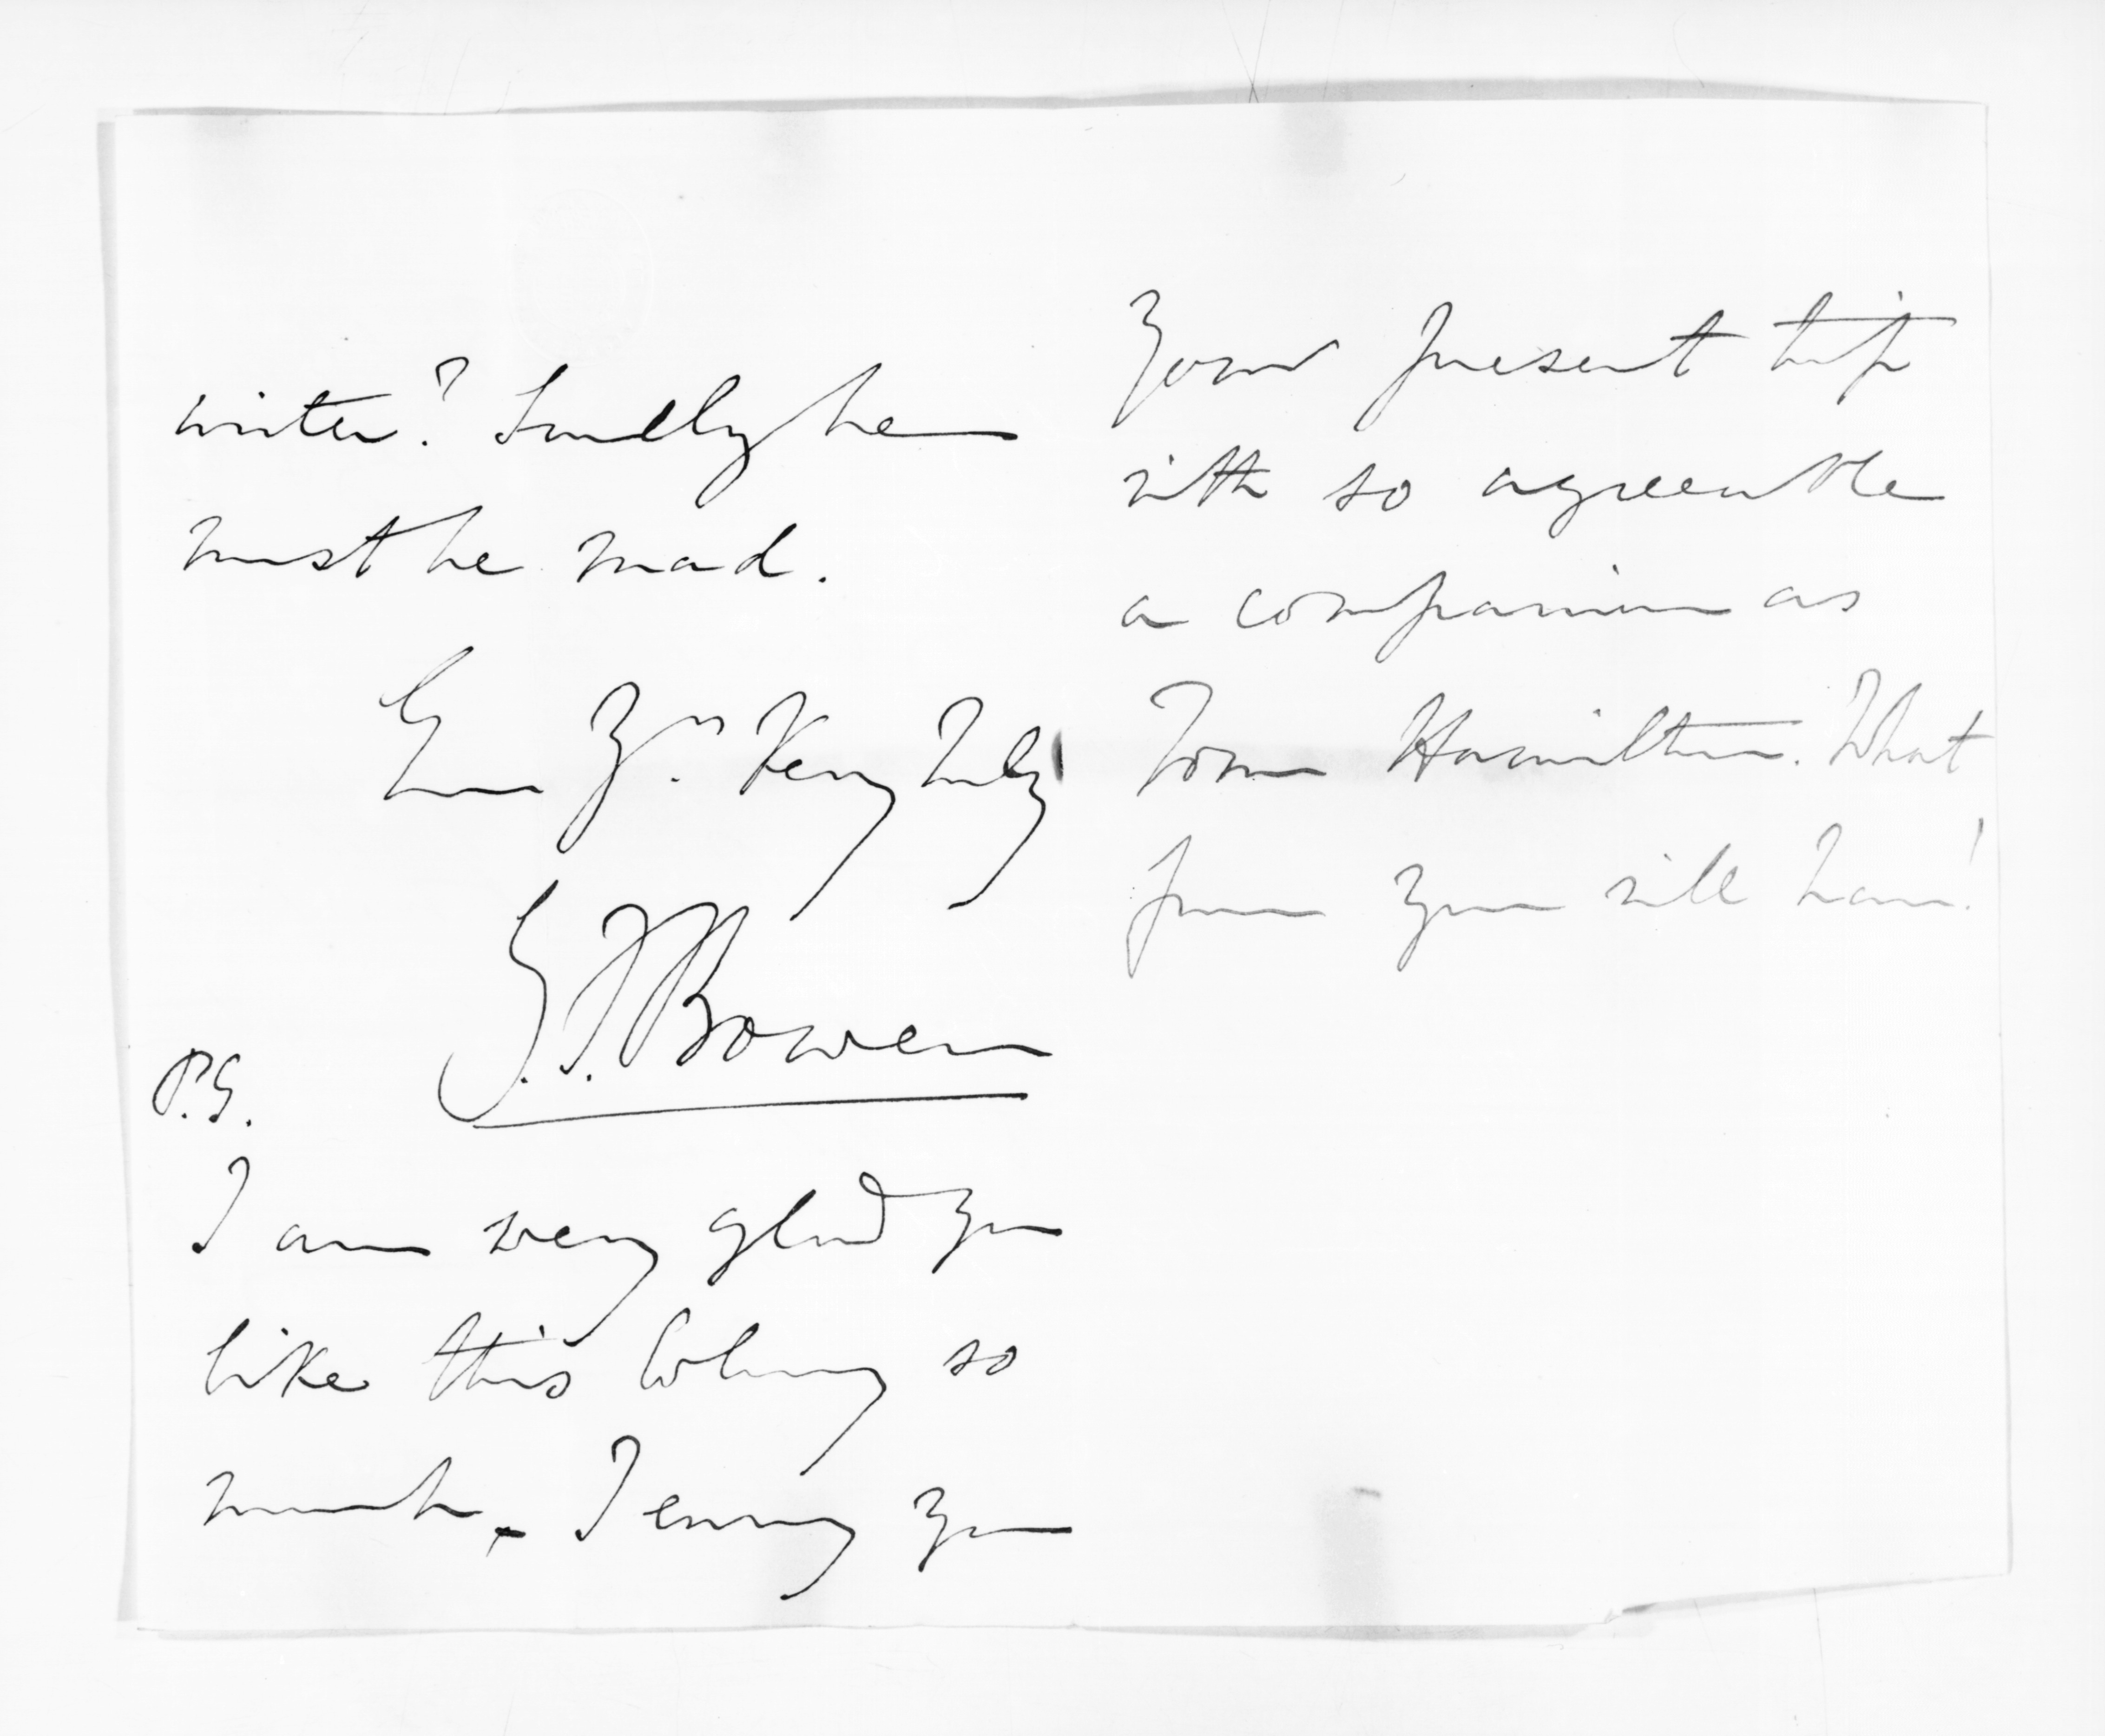 writer? Surely he
must be mad.
Ever Yrs. Very Truly
G. F. Bowen
P.S.
I am very glad you
like this Colony so
much. I envy you
your present trip
with so agreeable
a companion as
Tom Hamilton. What
fun you will have!